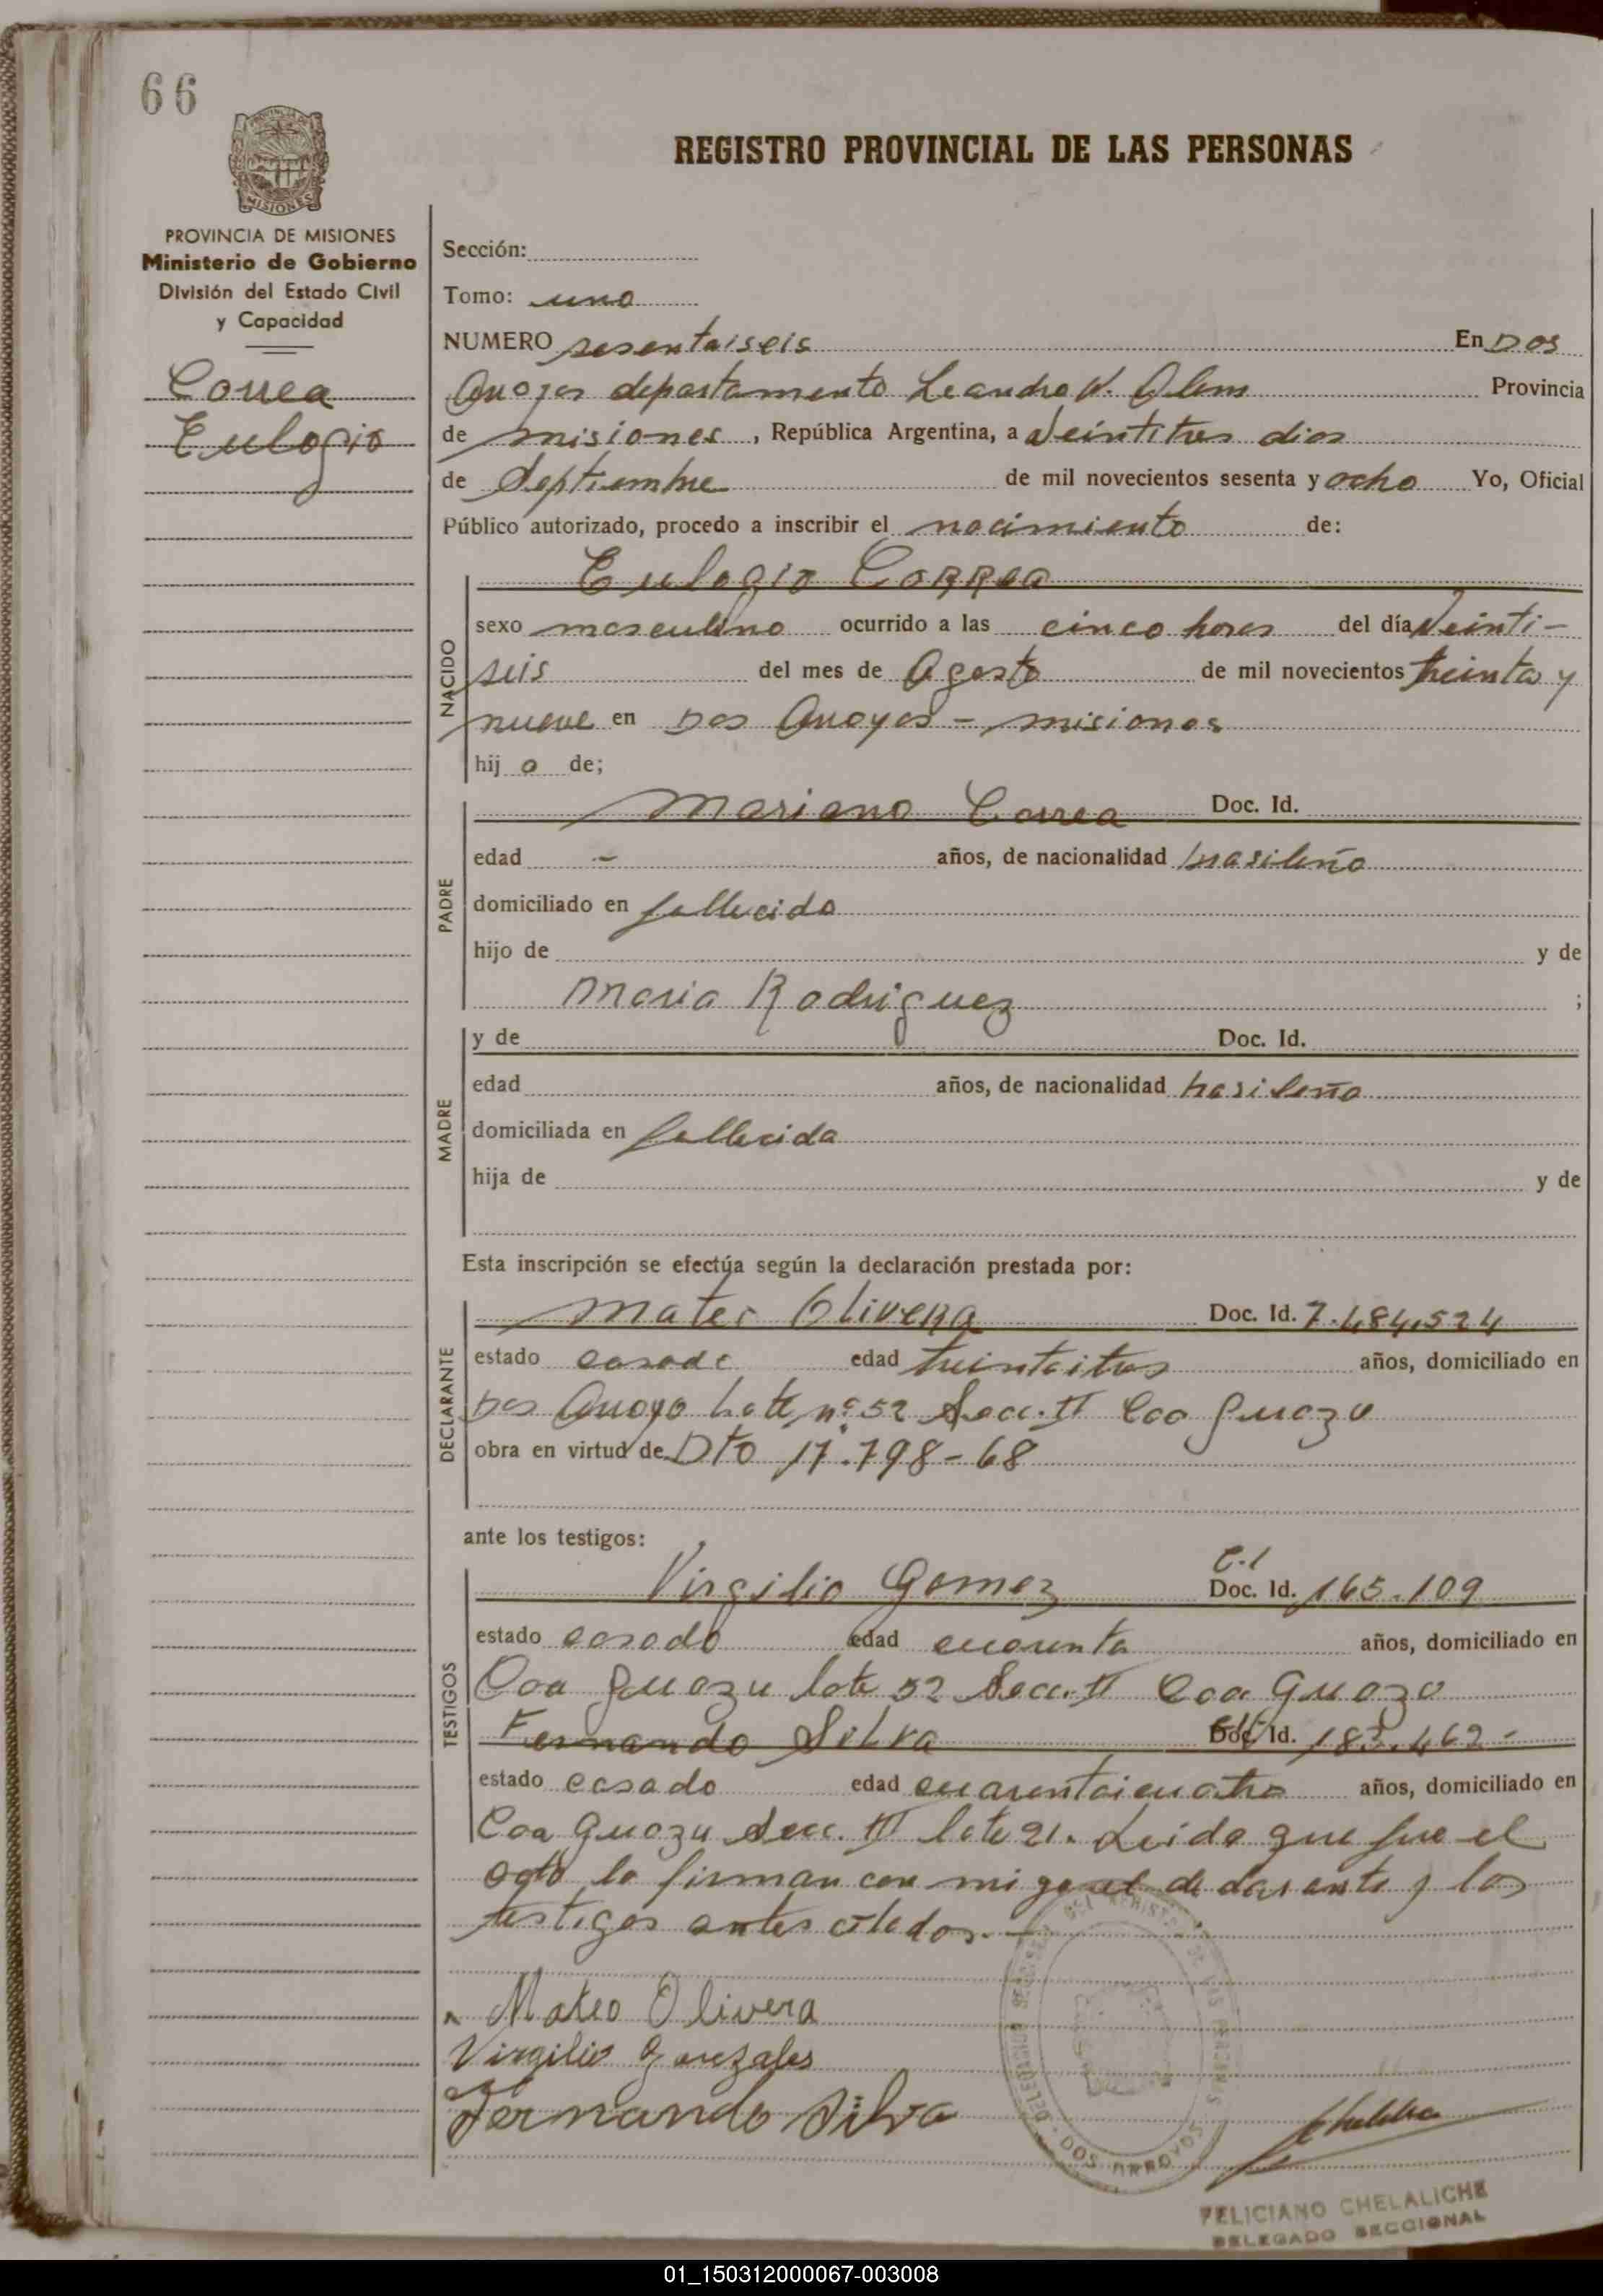 66
REGISTRO PROVINCIAL DE LAS PERSONAS
MISIONES
PROVINCIA DE MISIONES
Ministerio de Gobierno
División del Estado Civil
y Capacidad
Correa
Eulogio
Sección:
Tomo: uno
NUMERO sesentaiseis En Dos
Arroyos departamento Leandro N. Alem Provincia
de misiones, República Argentina, a Veintitres dias
de Septiembre de mil novecientos sesenta y ocho Yo, Oficial
Público autorizado, procedo a inscribir el nacimiento de:
NACIDO
Eulogio Correa
sexo masculino ocurrido a las cinco horas del día Veinti-
seis del mes de Agosto de mil novecientos treinta y
nueve en Dos Arroyos - misiones
hij o de;
PADRE
Mariano Correa Doc. Id.
edad - años, de nacionalidad brasileño
domiciliado en fallecido
hijo de y de
Maria Rodriguez ;
MADRE
y de Doc. Id.
edad años, de nacionalidad brasileña
domiciliada en fallecida
hija de y de
Esta inscripción se efectúa según la declaración prestada por:
DECLARANTE
Mateo Olivera Doc. Id. 7.484.524
estado casado edad treintaitres años, domiciliado en
Dos Arroyo Lote nº 52 Secc. II Caa Guazu
obra en virtud de Dto 17.798-68
ante los testigos:
TESTIGOS
C.I
Virgilio Gomez Doc. Id. 165.109
estado casado edad cuarenta años, domiciliado en
Caa Guazu lote 52 Secc. II Caa Guazu
Fernando Silva Doc. Id. 183.462-
estado casado edad cuarentaicuatro años, domiciliado en
Caa Guazu Secc. III lote 21. Leida que fue el
acto lo firman con migo el declarante y los
testigos antes citados.-
Mateo Olivera
Virgilio Gonzales
Fernando Silva
DOS ARROYOS
FELICIANO CHELALICHE
DELEGADO SECCIONAL
01_150312000067-003008